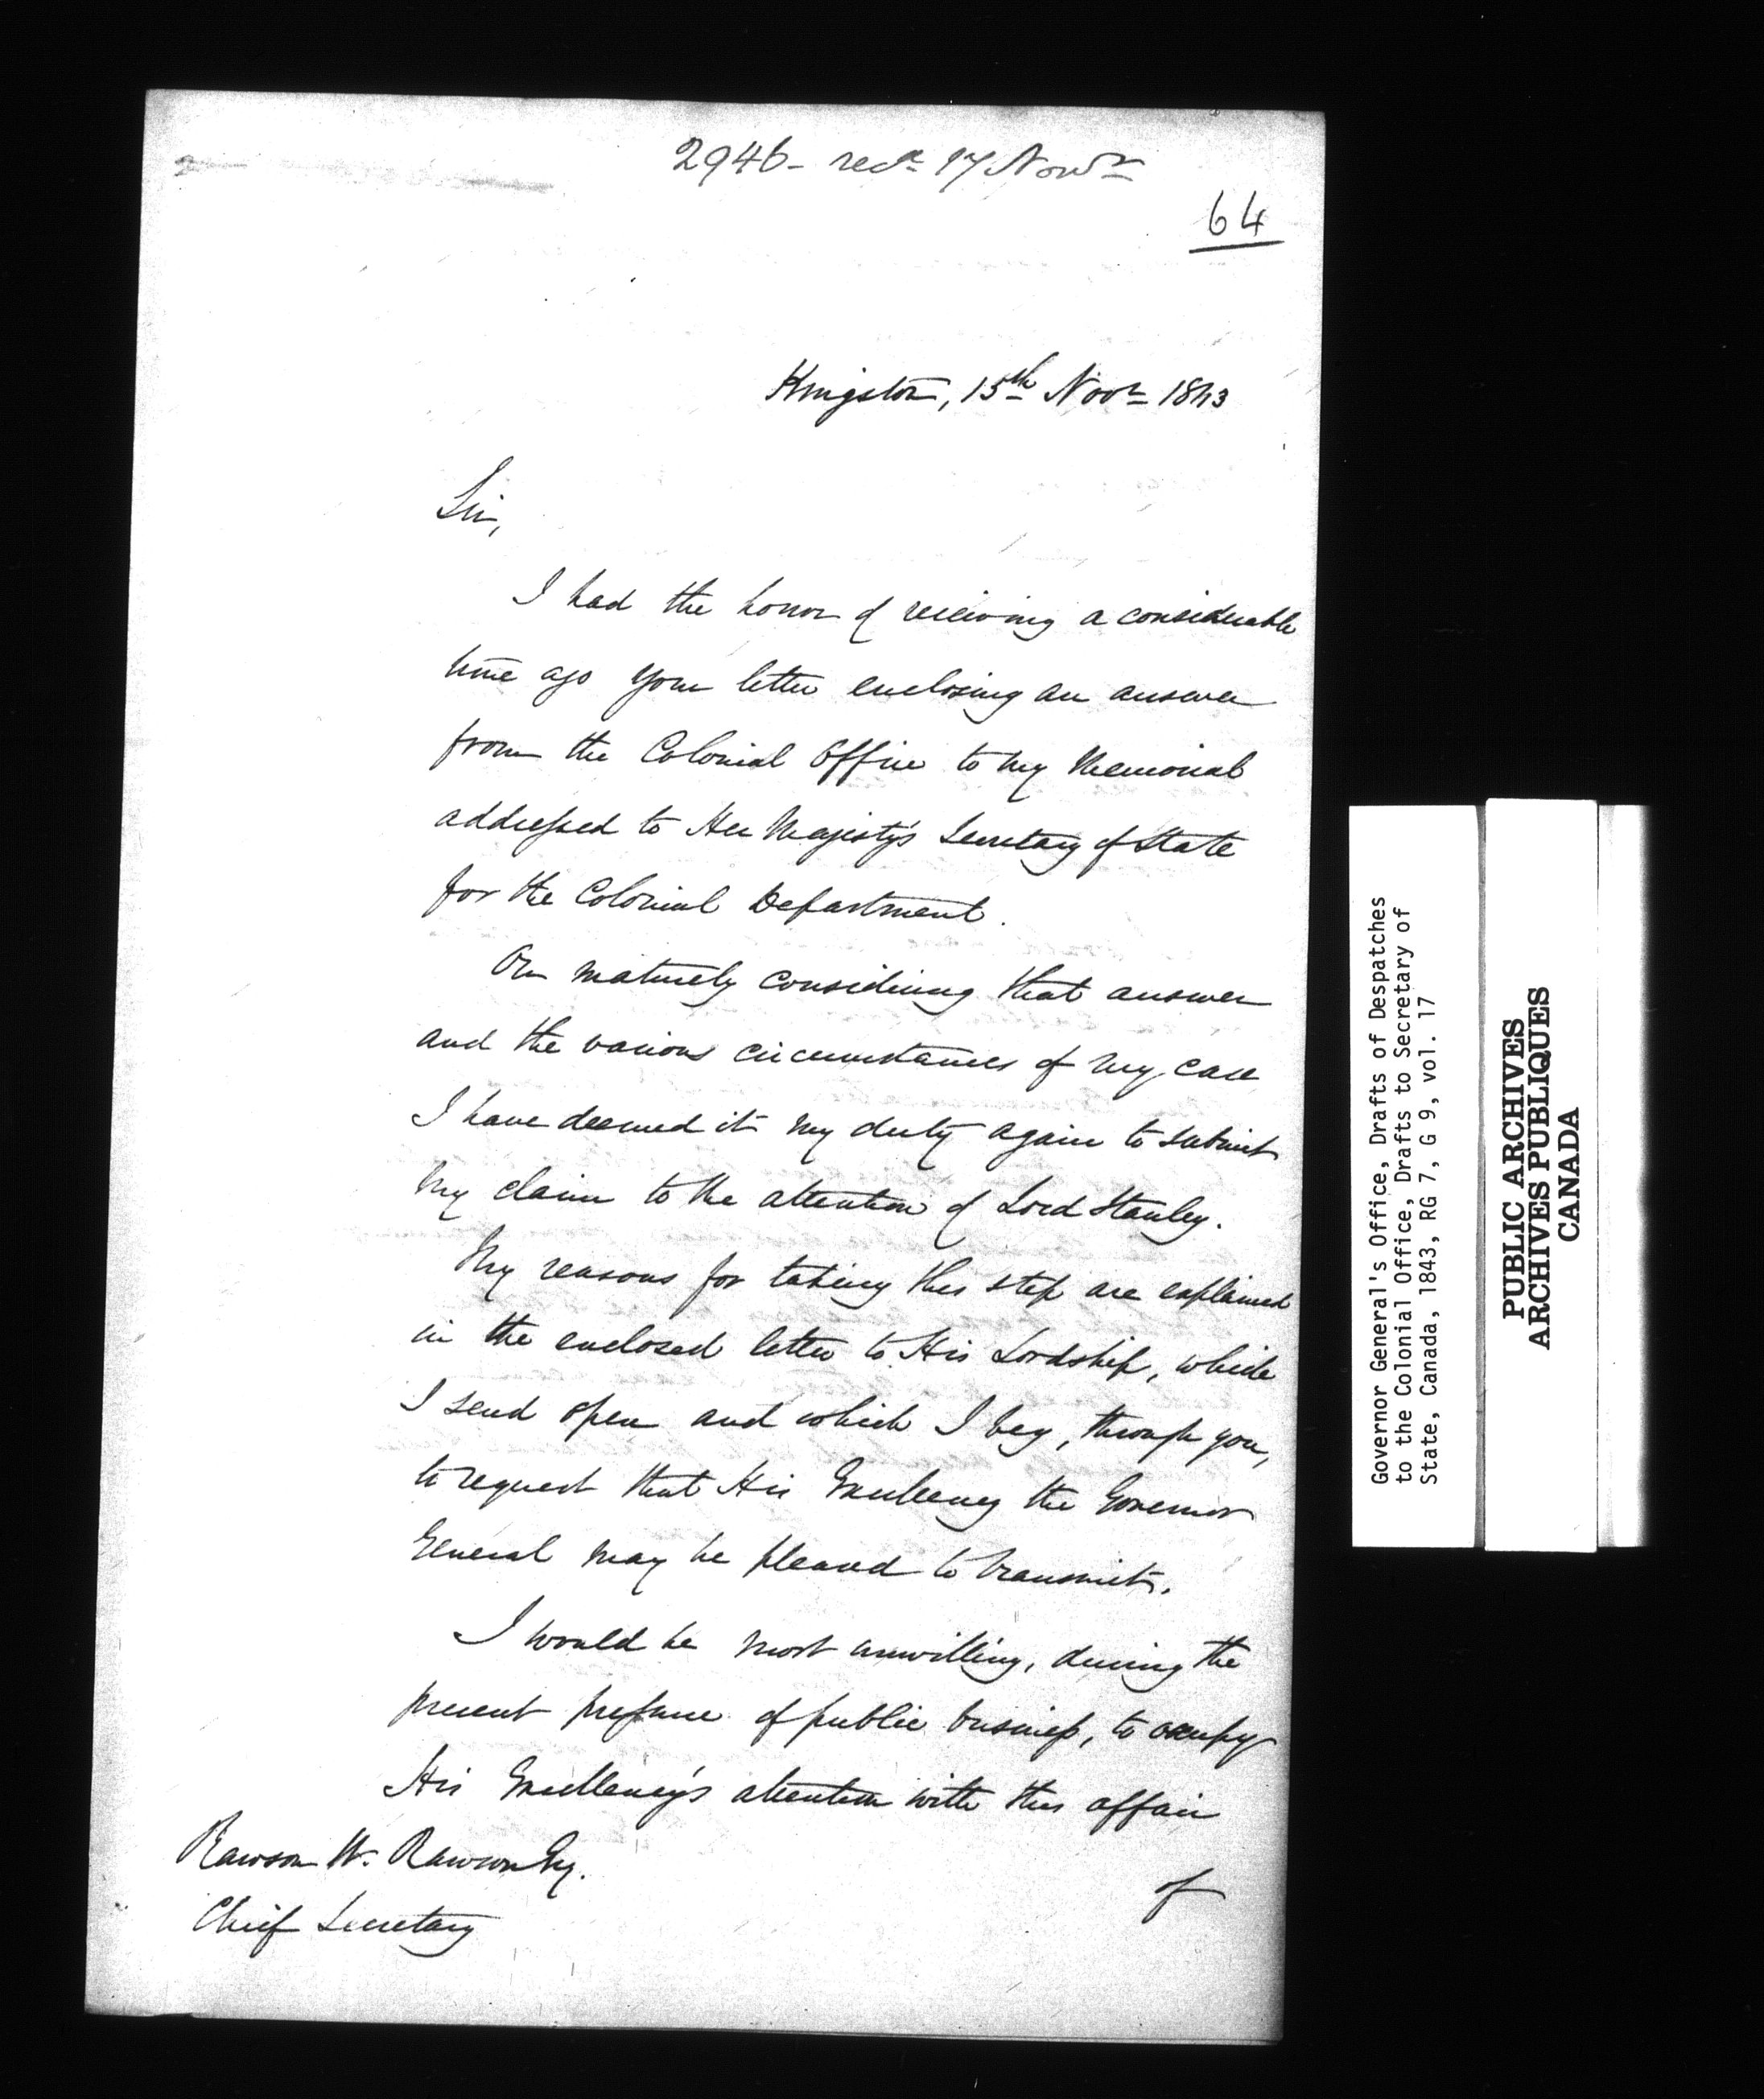 2946- recd 17 Novr
64
Kingston, 15th Novr 1843
Sir,
I had the honor of receiving a considerable
time ago your letter enclosing an answer
from the Colonial Office to my Memorial
addressed to Her Majesty's Secretary of State
for the Colonial Department.
On maturely considering that answer
and the various circumstances of my case
I have deemed it my duty again to submit
my claim to the attention of Lord Stanley.
My reasons for taking this step are explained
in the enclosed letter to His Lordship, which
I send open and which I beg, through you,
to request that His Excellency the Governor
General may be pleased to transmit.
I would be most unwilling, during the
present pressure of public business, to occupy
His Excellency's attention with this affair
of
Rawson W. Rawson Esq.
Chief Secretary
Governor General's Office, Drafts of Despatches
to the Colonial Office, Drafts to Secretary of
State, Canada, 1843, RG 7, G 9, vol. 17
PUBLIC ARCHIVES
ARCHIVES PUBLIQUES
CANADA